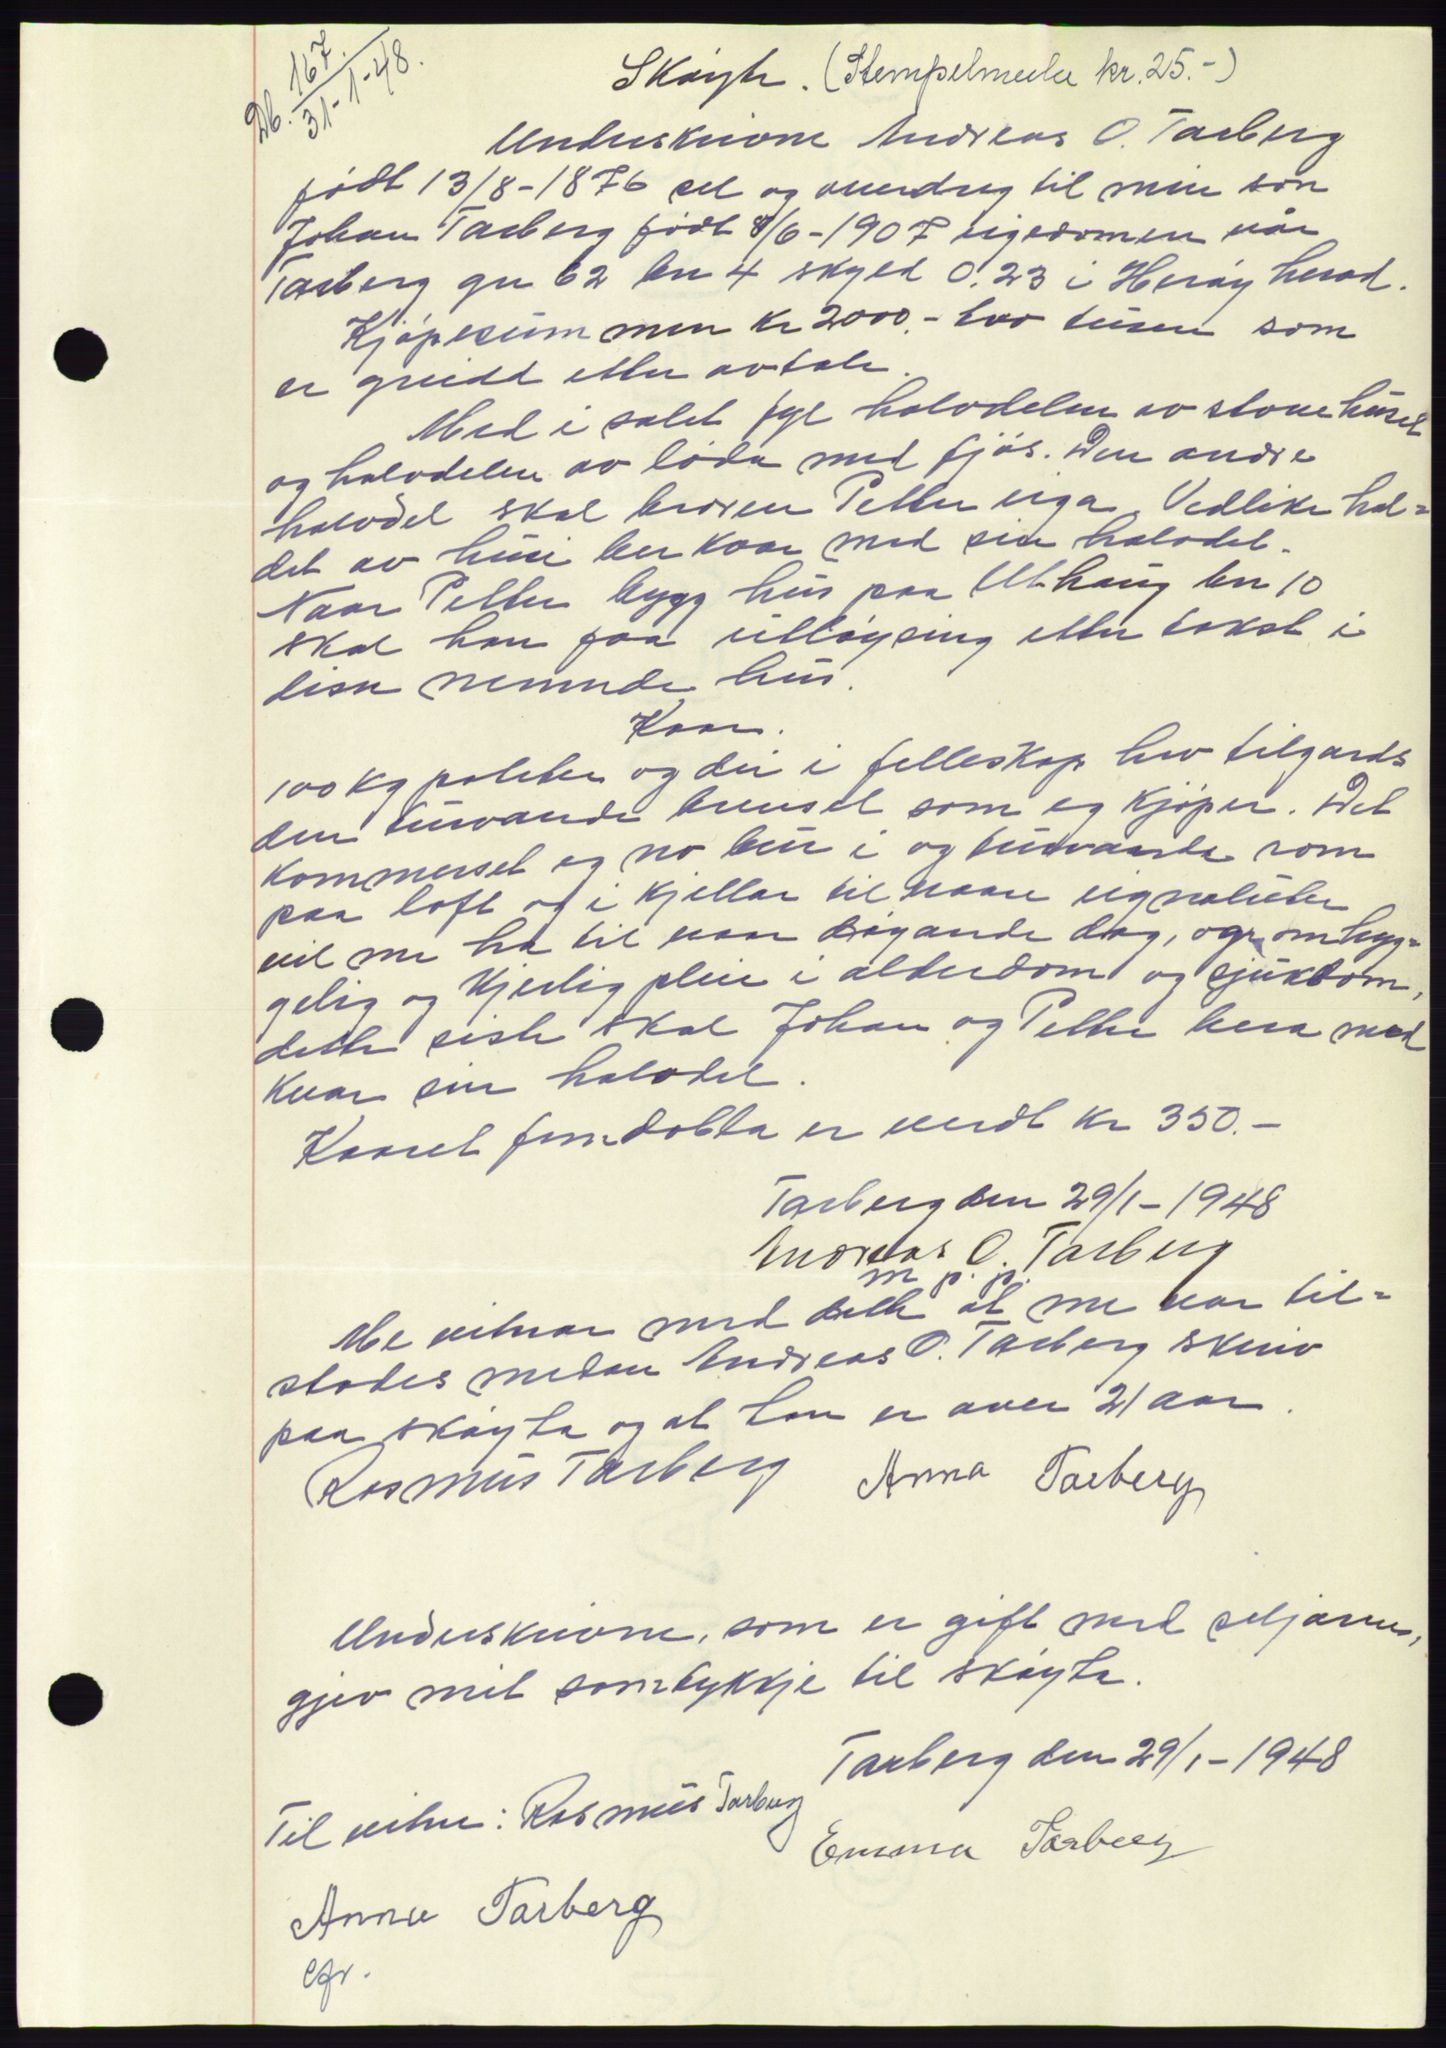 Db. 167.
31-1-48.
Skøyte. (Stempelmerke kr. 25.-)
Underskrivne Andreas O. Tarberg
født 13/8-1876 sel og overdreg til min son
Johan Tarberg født 8/6-1907 eigedomen vår
Tarberg gn 62 bn 4 skyld 0.23 i Herøy herad.
Kjøpesummen kr 2000.- tvo tusen som
er greidd etter avtale.
Med i salet fyl halvdelen av stovehuset
og halvdelen av løda med fjøs. Den andre
halvdel skal broren Petter eiga. Vedlikehal=
det av husi ber kvar med sin halvdel.
Naar Petter bygg hus paa Uthaug bn 10
skal han faa utløysing etter takst i
disse nemnde hus.
Kaar.
100 kg poteter og dei i felleskap hev tilgards
den turvande brensel som eg kjøper. Det
kommerset eg no bur i og turvande rom
paa loft og i kjellar til vaare eignaluter
vil me ha til vaar døyande dag, ogso omhyg=
gelig og kjerlig pleie i alderdom og sjukdom,
dette siste skal Johan og Petter bera med
kvar sin halvdel.
Kaaret femdobla er verdt kr 350.-
Tarberg den 29/1-1948
Andreas O. Tarberg
m. p. p.
Me vitnar med dette at me var til=
stades medan Andreas O. Tarberg skreiv
paa skøyta og at han er over 21 aar.
Rasmus Tarberg Anna Tarberg
Underskrivne, som er gift med seljaren,
gjev mit samtykkje til skøyta.
Tarberg den 29/1-1948
Til vitne: Rasmus Tarberg
Emma Tarberg
Anna Tarberg
efr.